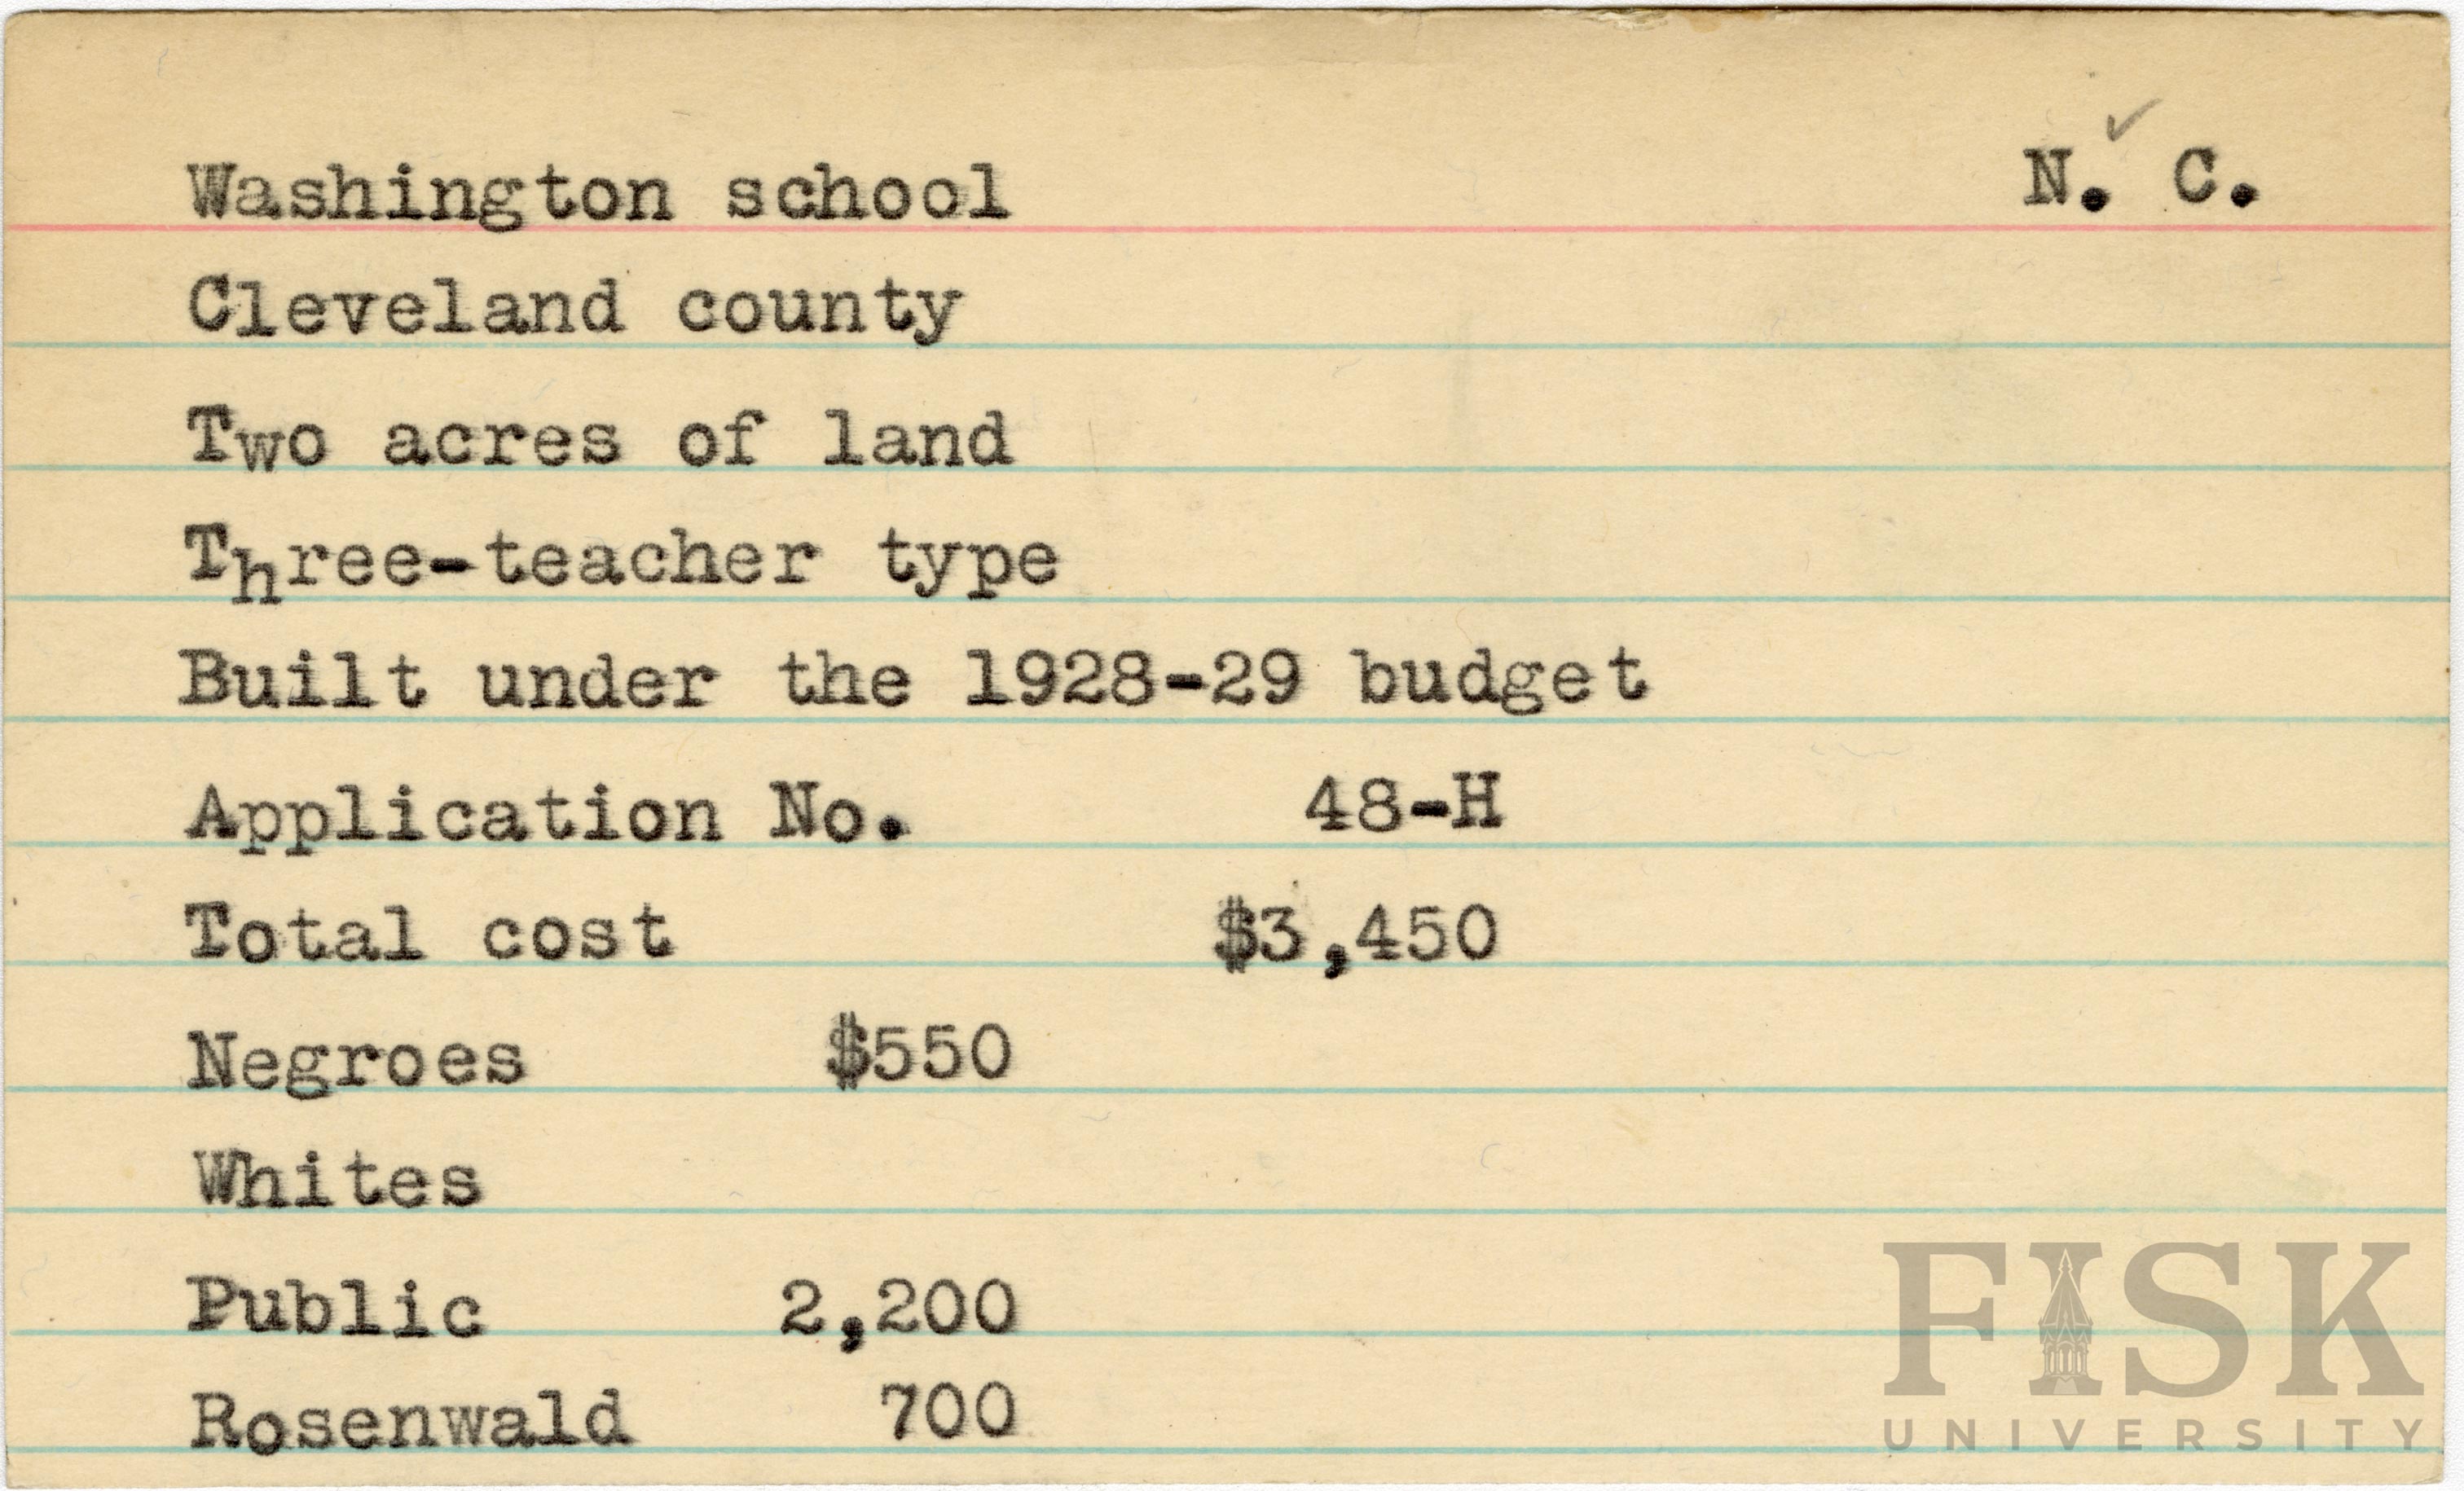 Washington school N. C.
Cleveland county
Two acres of land
Three-teacher type
Built under the 1928-29 budget
Application No. 48-H
Total cost $3,450
Negroes $550
Whites
Public 2,200
Rosenwald 700
FISK
UNIVERSITY